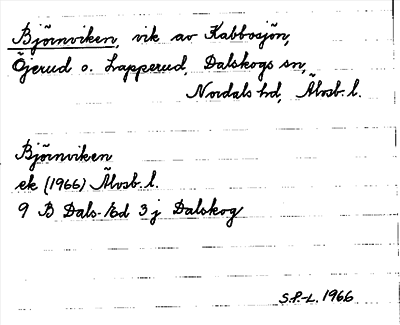 Björnviken, vik av Kabbosjön,
Öjerud o. Lapperud, Dalskogs sn,
Nordals hd, Älvsb. l.
Björnviken
ek (1966) Älvsb. l.
9 B Dals-Ed 3 j Dalskog
S.P.-L. 1966